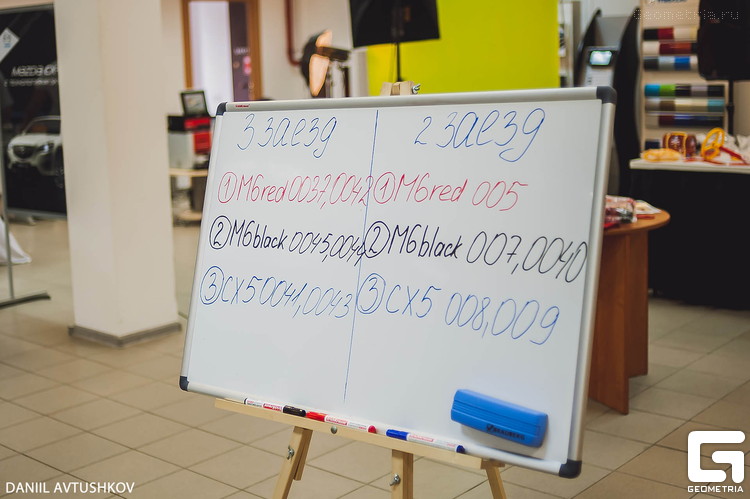 Geometria.ru
MAZDA
3 заезд
① M6red 0037,0042
② M6black 0045,004
③ CX5 0041,0043
2 заезд
① M6red 005
② M6black 007,0040
③ CX5 008,009
DANIIL AVTUSHKOV
G
GEOMETRIA